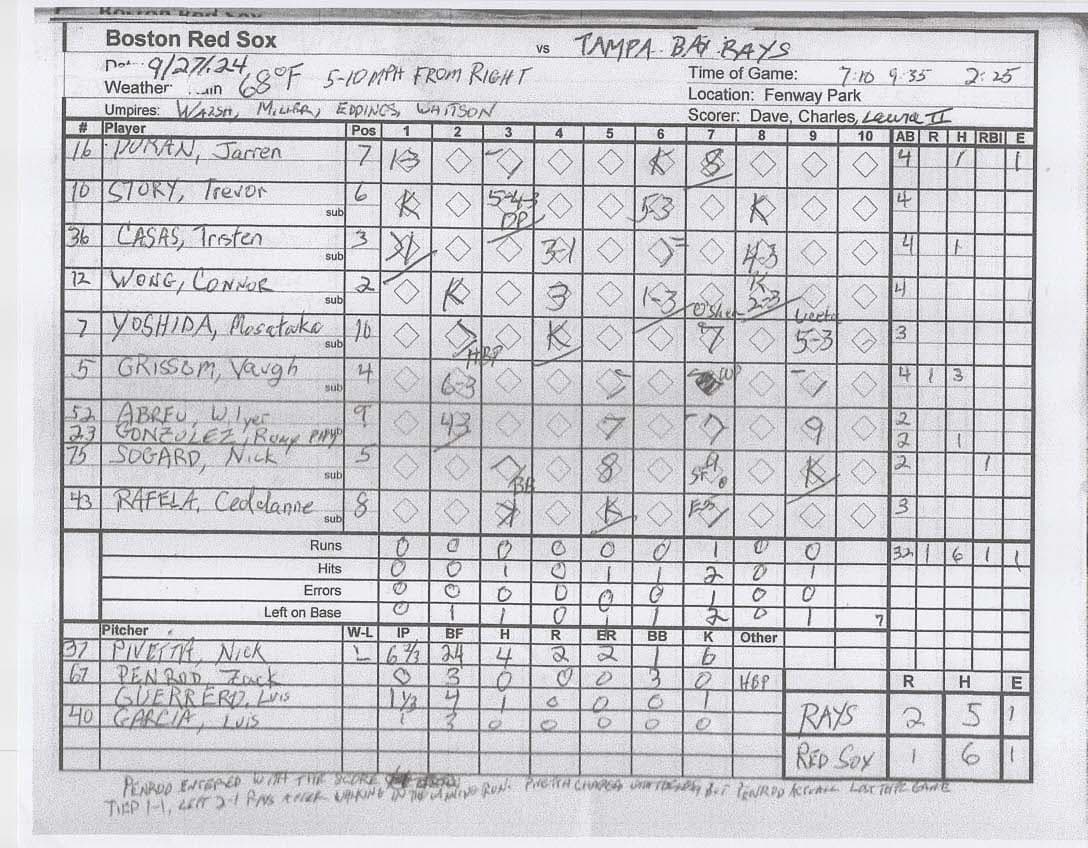 Boston Red Sox vs TAMPA BAY RAYS
9/27/24
Weather 68°F 5-10 MPH FROM RIGHT
Time of Game: 7:10 9:35 2:25
Location: Fenway Park
Umpires: WALSH, MILLER, EDDINGS, WATSON
Scorer: Dave, Charles, Laura II
# Player Pos 1 2 3 4 5 6 7 8 9 10 AB R H RBI E
16 DURAN, Jarren 7 1-3 K 8 4 1 1
10 STORY, Trevor 6 K 5-4-3 DP 5-3 K 4
sub
36 CASAS, Tristen 3 3-1 4-3 4 1
sub
12 WONG, CONNOR 2 K 3 1-3 K 2-3 4
sub
7 YOSHIDA, Masataka 10 HBP K 7 5-3 3
sub
5 GRISSOM, Vaugh 4 6-3 WP 4 1 3
sub
52 ABREU, Wilyer 9 43 7 7 9 2
23 GONZULEZ, Romy PH 2 1
75 SOGARD, Nick 5 BB 8 SF 9 K 2 1
sub
43 RAFELA, Ceddanne 8 K E3 3
sub
Runs 0 0 0 0 0 0 1 0 0 32 1 6 1 1
Hits 0 0 1 0 1 1 2 0 1
Errors 0 0 0 0 0 0 1 0 0
Left on Base 0 1 1 0 1 1 2 0 1 7
Pitcher W-L IP BF H R ER BB K Other
37 PIVETTA, Nick L 6 2/3 24 4 2 2 1 6
67 PENROD, Zack 0 3 0 0 0 3 0 HBP
GUERRERO, Luis 1 1/3 4 1 0 0 0 1
40 GARCIA, Luis 1 3 0 0 0 0 0
R H E
RAYS 2 5 1
RED SOX 1 6 1
PENROD ENTERED WITH THE SCORE
TIED 1-1, LEFT 2-1 RAYS AFTER WALKING IN THE WINNING RUN. PIVETTA CHARGED WITH THE LOSS BUT PENROD ACTUALLY LOST THE GAME